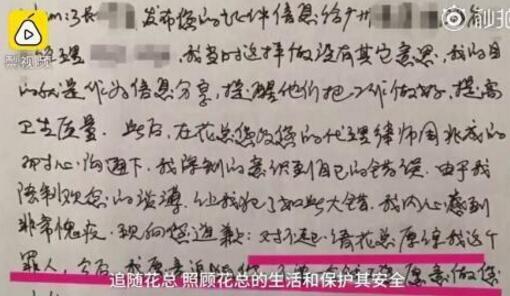 梨视频
秒拍
发布您的证件信息给广
经理 ，我当时这样做没有其它意思，我的目
的就是作为信息分享，提醒他们把工作做好，提高
卫生质量。此后，在花总您及您的代理律师周兆成的
耐心沟通下，我深刻的意识到自己的错误，由于我
法制观念的淡薄，让我犯了如此大错，我内心感到
非常愧疚，现向您道歉：对不起，请花总原谅我这个
罪人，今后，我愿意 愿意做您
追随花总 照顾花总的生活和保护其安全